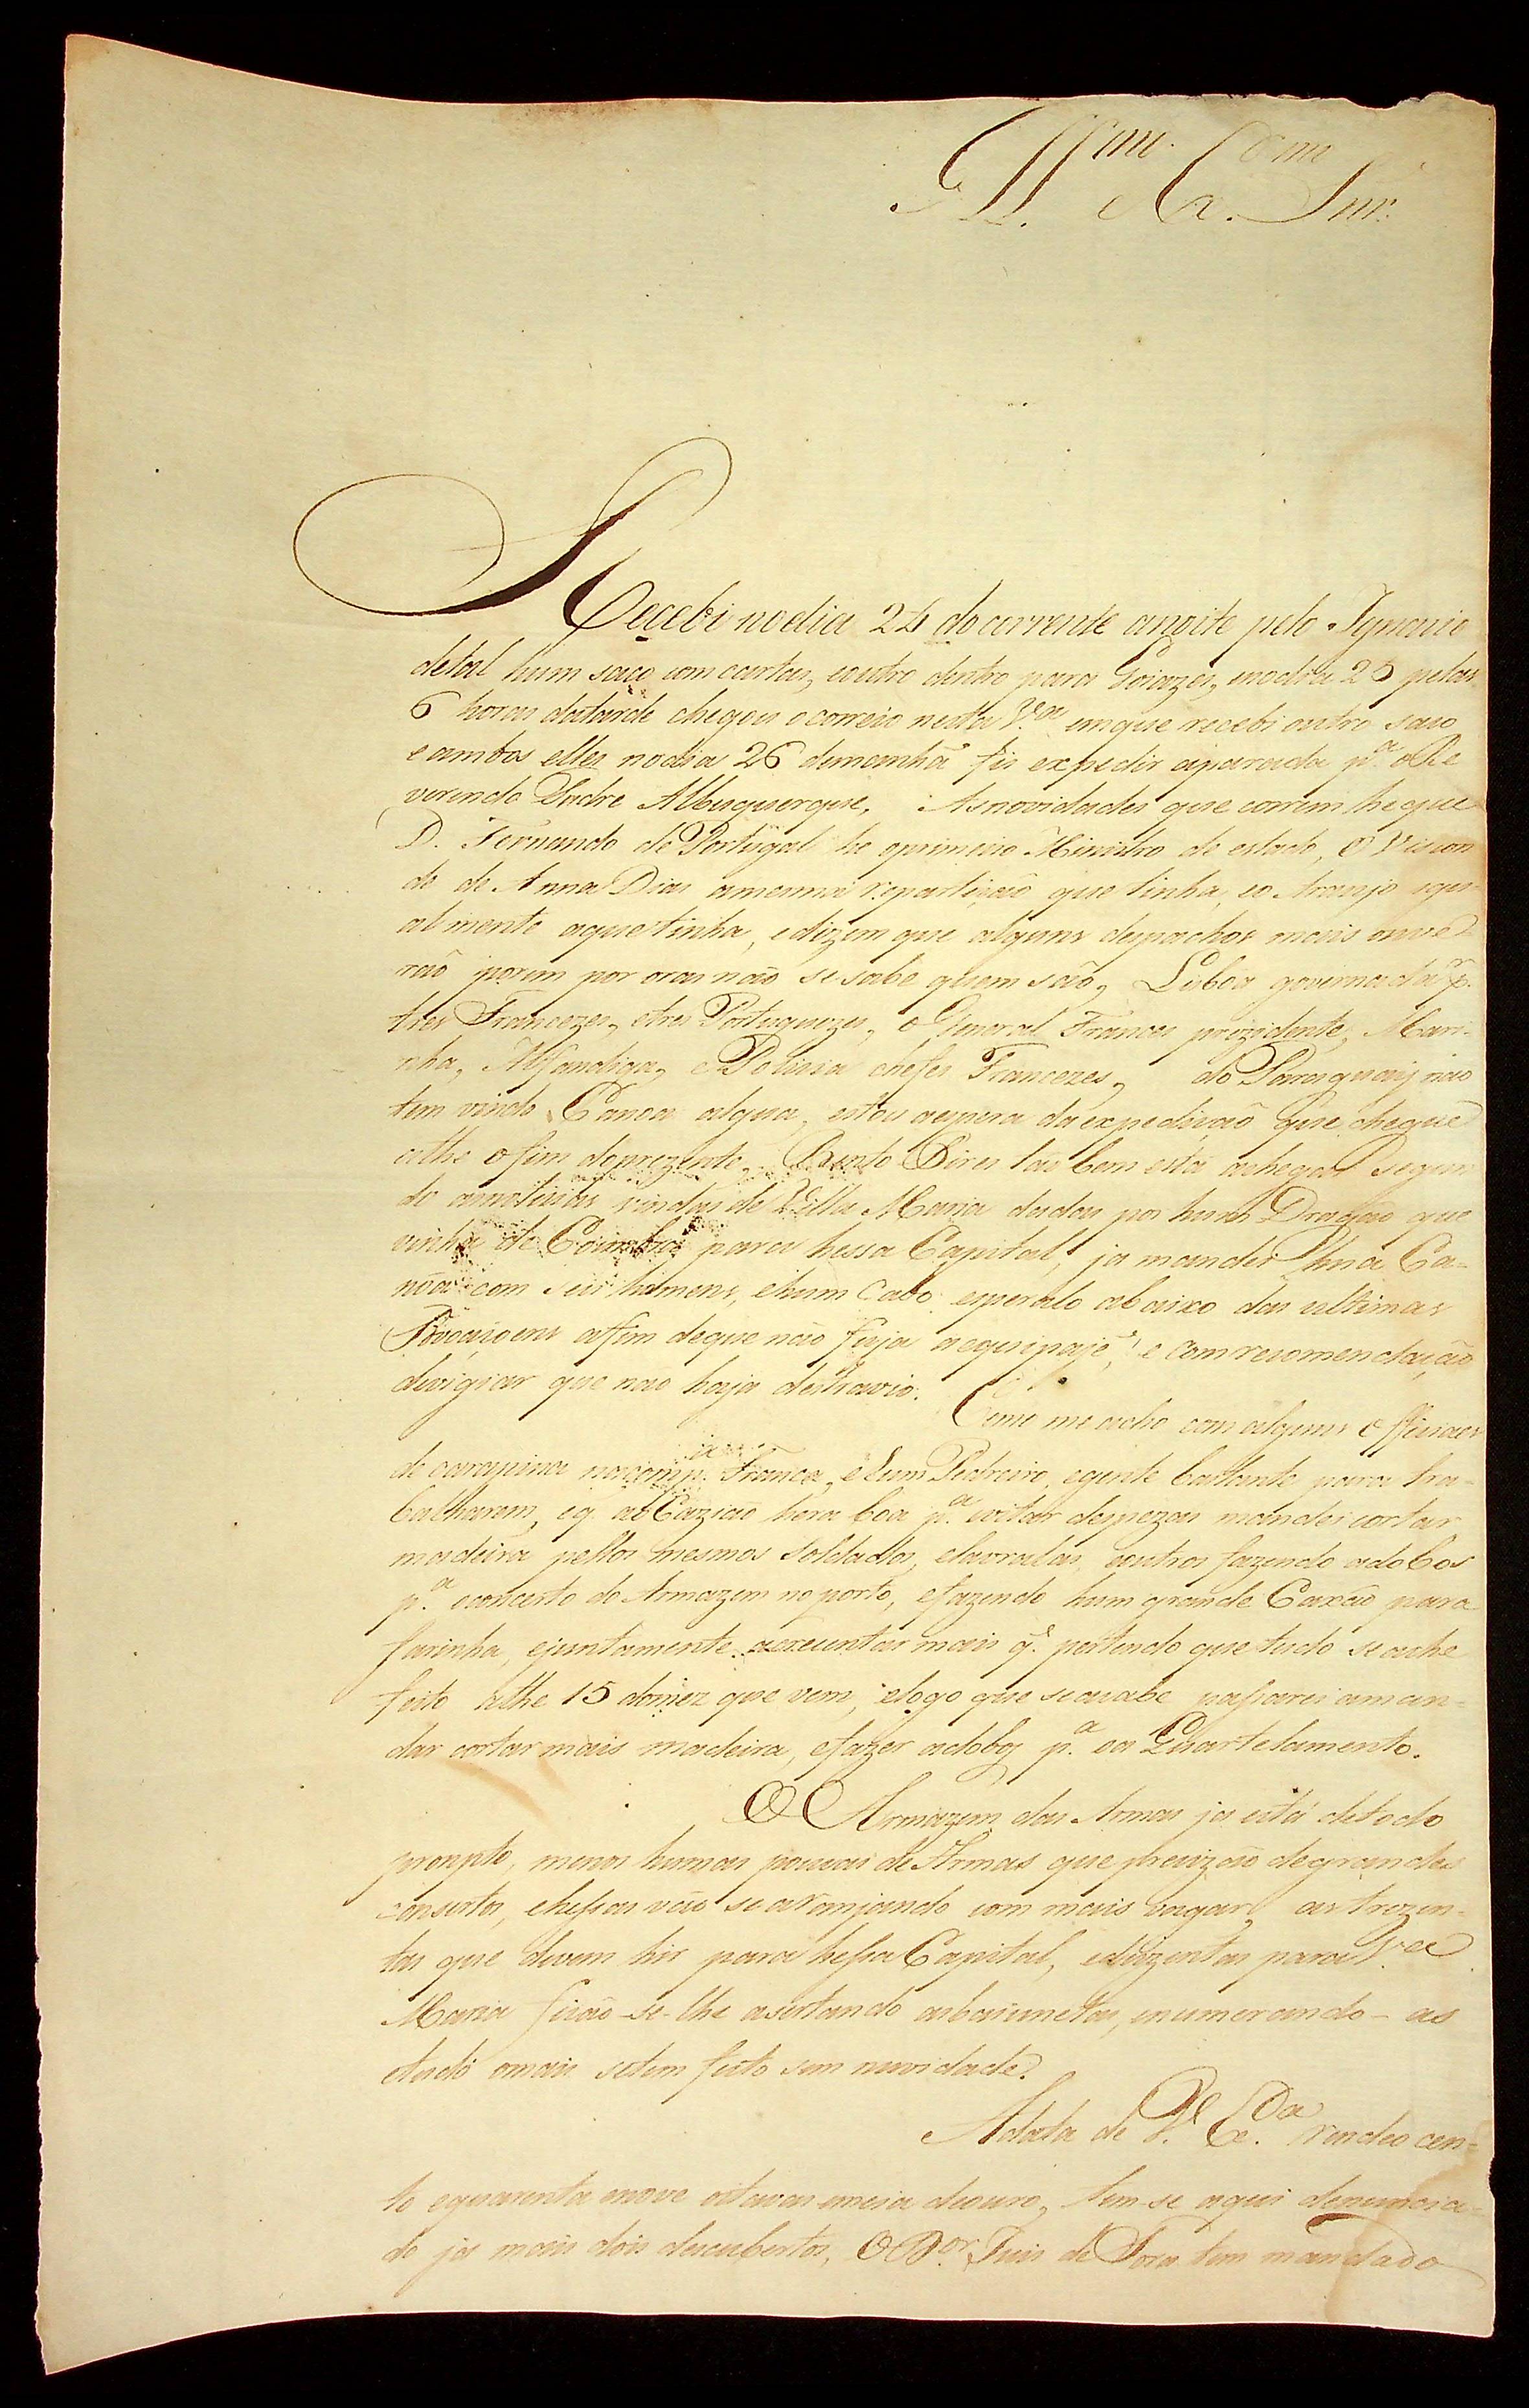 Ill.mo Ex.mo Snr.
Recebi no dia 24 do corrente anoite pelo Ignacio
detal hum saco com cartas, eoutro dentro para Goiazes, enodia 25 pelas
6 horas datarde chegou o correio nesta V.a emque recebi outro saco
eambos elles nodia 26 demanhã fis expedir aparada p.a oRe
verendo Padre Albuquerque, Asnovidades que correm he que
D. Fernando de Portugal he oprimeiro Ministro de estado, O Viscon
de de Anna Dias amesma repartição que tinha, eo Araujo igu-
almente aquetinha, edizem que alguns despachos mais ouve
rão porem por oras não sesabe quem são, Lisboa governada p.r
tres Francezes, etres Portuguezes, o General Frances prezidente, Mari-
nha, Alfandiga, ePolicia chefes Francezes, do Paraguay não
tem vindo Canoa algua, estou aespera da expedição que chegue
athe ofim doprezente, Bento Pires tão bem está achegar segun
do asnoticias vindas de Villa Maria dadas por hum Dragão que
vinha de Coimbra para hessa Capital, ja mandei huã Ca-
nôa com seis homens, ehum Cabo esperalo abaixo das ultimas
Povoaçoens affim deque não fuja aequipaje, e Com recomendação
devigiar que nao haja destravio. Como me acho com alguns Officiaes
de carapina nacomp.ia Franca, ehum Pedreiro, egente bastante para tra-
balharem, eq. aoCazião hera boa p.a evitar despezas mandei cortar
madeira pellos mesmos Soldados, elavralas, eoutros fazendo adobos
p.a econcerto do Armazem no porto, efazendo hum grande Caxão para
farinha, ejuntamente acrecentar mais q.e pertendo que tudo se ache
feito athe 15 domez que vem, elogo que seacabe passarei aman-
dar cortar mais madeira, efazer adobos p.a oa Quartelamento.
O Armazem das Armas ja está detodo
prompto, menos humas poucas de Armas que precizão degrandes
consertos, ehessas vão se arranjando com mais vagar, as trezen-
tas que devem hir para hessa Capital, eduzentas para V.a
Maria ficão-se-lhe asertando asbaiunetas, enumerando-as
etudo omais setem feito sem novidade.
Adata de V. Ex.a rendeo cen-
to equarenta enove oitavas emeia deouro, tem-se aqui denuncia-
do ja mais dois descubertos, O D.or Juis de Fora tem mandado